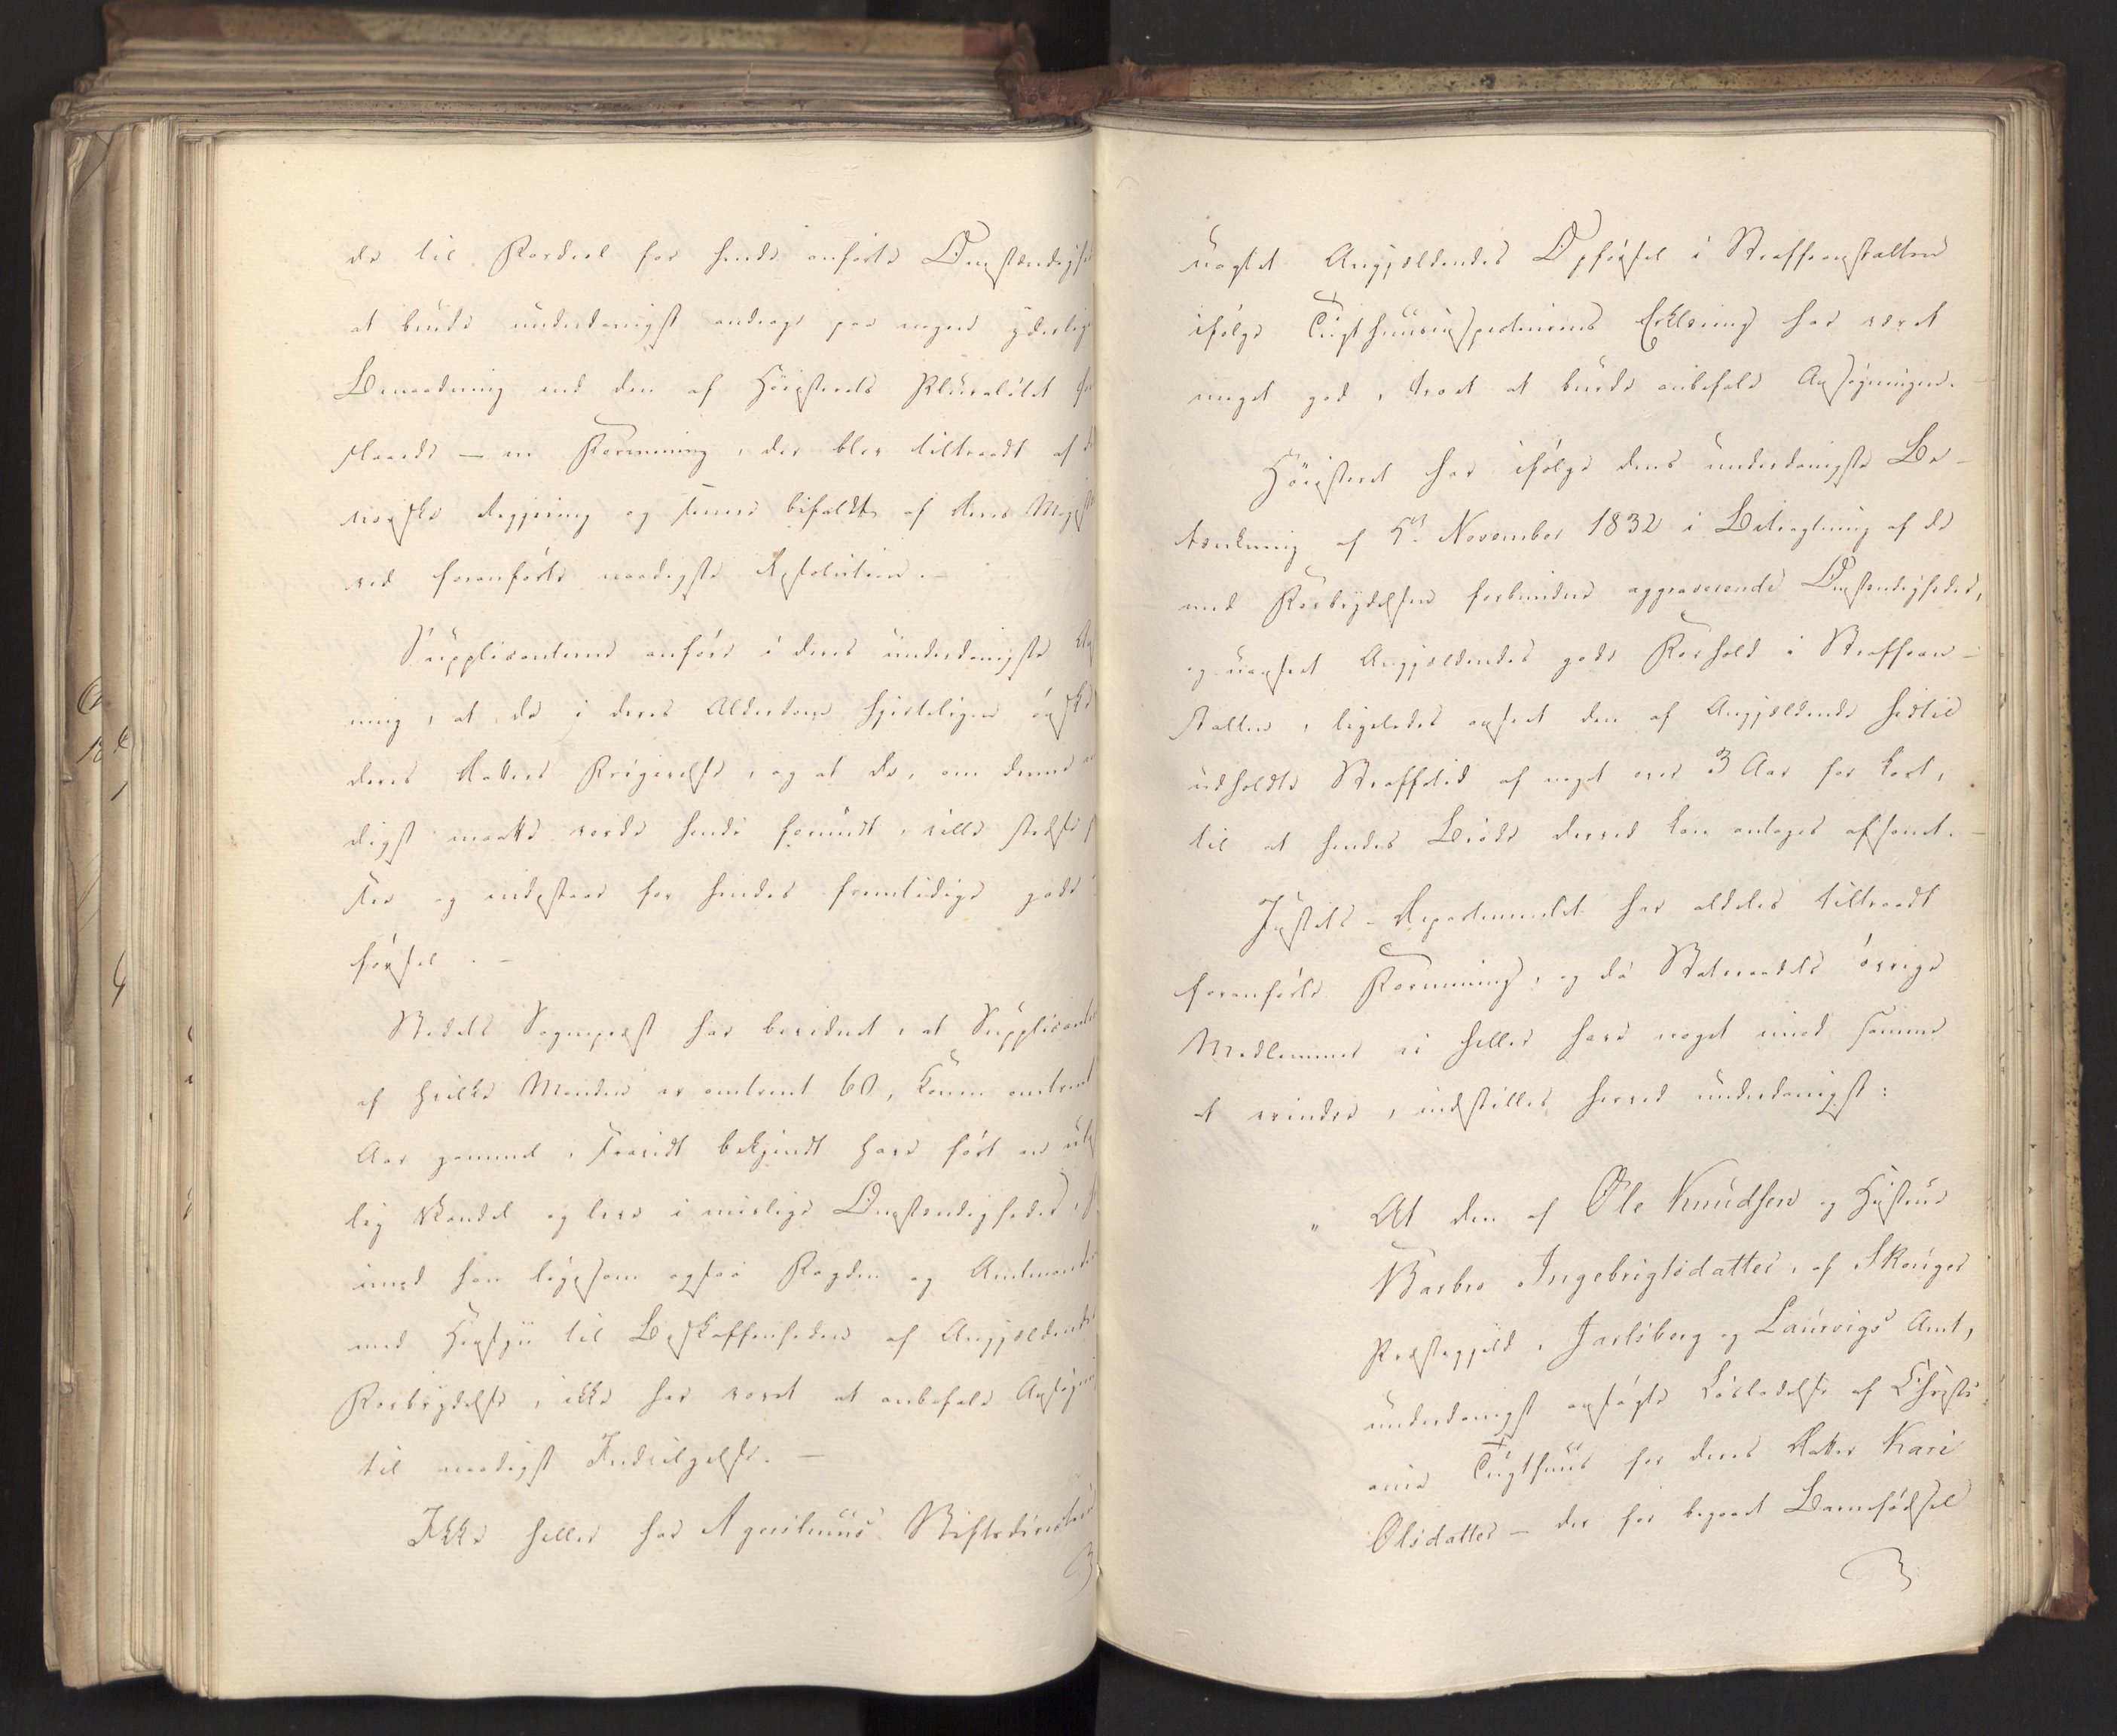 de til Fordeel for hende anførte Omstændighe
at burde underdanigst andrage paa nogen yderlige
Benaadning end den af Høiesterets Pluralitet fore
slaaede — en Formening, der blev tiltraadt af d
norske Regjering og senere bifaldt af Deres Majest
ved foranførte naadigste Resolution. —
Supplicanterne anføre i deres underdanigste An
ning, at de i deres Alderdom hjerteligen ønske
deres Datters Frigivelse, og at de, om denne na
digst maatte vorde hende forundt, ville stedse s
ter og indestaae for hendes fremtidige gode
førsel. —
Stedets Sognepræst har bevidnet, at Supplicanter
af hvilke Manden er omtrent 60, Konen omtrent
Aar gammel, saavidt bekjendt have ført en ulas
lig Vandel og leve i mislige Omstændigheder, h
imod han ligesom ogsaa Fogden og Amtmanden
med Hensyn til Beskaffenheden af Angjældendes
Forbrydelse, ikke har vovet at anbefale Ansøgnin
til naadigst Indvilgelse. —
Ikke heller har Agershuus Stiftsdirection
uagtet Angjældendes Opførsel i Straffeanstalten
ifølge Tugthuusinspecteurens Erklæring har været
meget god, troet at burde anbefale Ansøgningen. —
Høiesteret har ifølge dens underdanigste Be-
tænkning af 5te November 1832 i Betragtning af de
med Forbrydelsen forbundne aggraverende Omstændigheder,
og uanseet Angjældendes gode Forhold i Straffean-
stalten, ligeledes anseet den af Angjældende hidtil
udholdte Straffetid af noget over 3 Aar for kort,
til at hendes Brøde derved kan antages afsonet. —
Justits-Departementet har aldeles tiltraadt
foranførte Formening, og da Statsraadets øvrige
Medlemmer ei heller have noget imod samme
at erindre, indstilles herved underdanigst:
" At den af Ole Knudsen og Hustrue
Barbro Ingebrigtsdatter, af Skouger
Præstegjeld, Jarlsberg og Laurvigs Amt,
underdanigst ansøgte Løsladelse af Christi-
ania Tugthuus for deres Datter Kari
Olsdatter — der for begaaet Barnefødsel